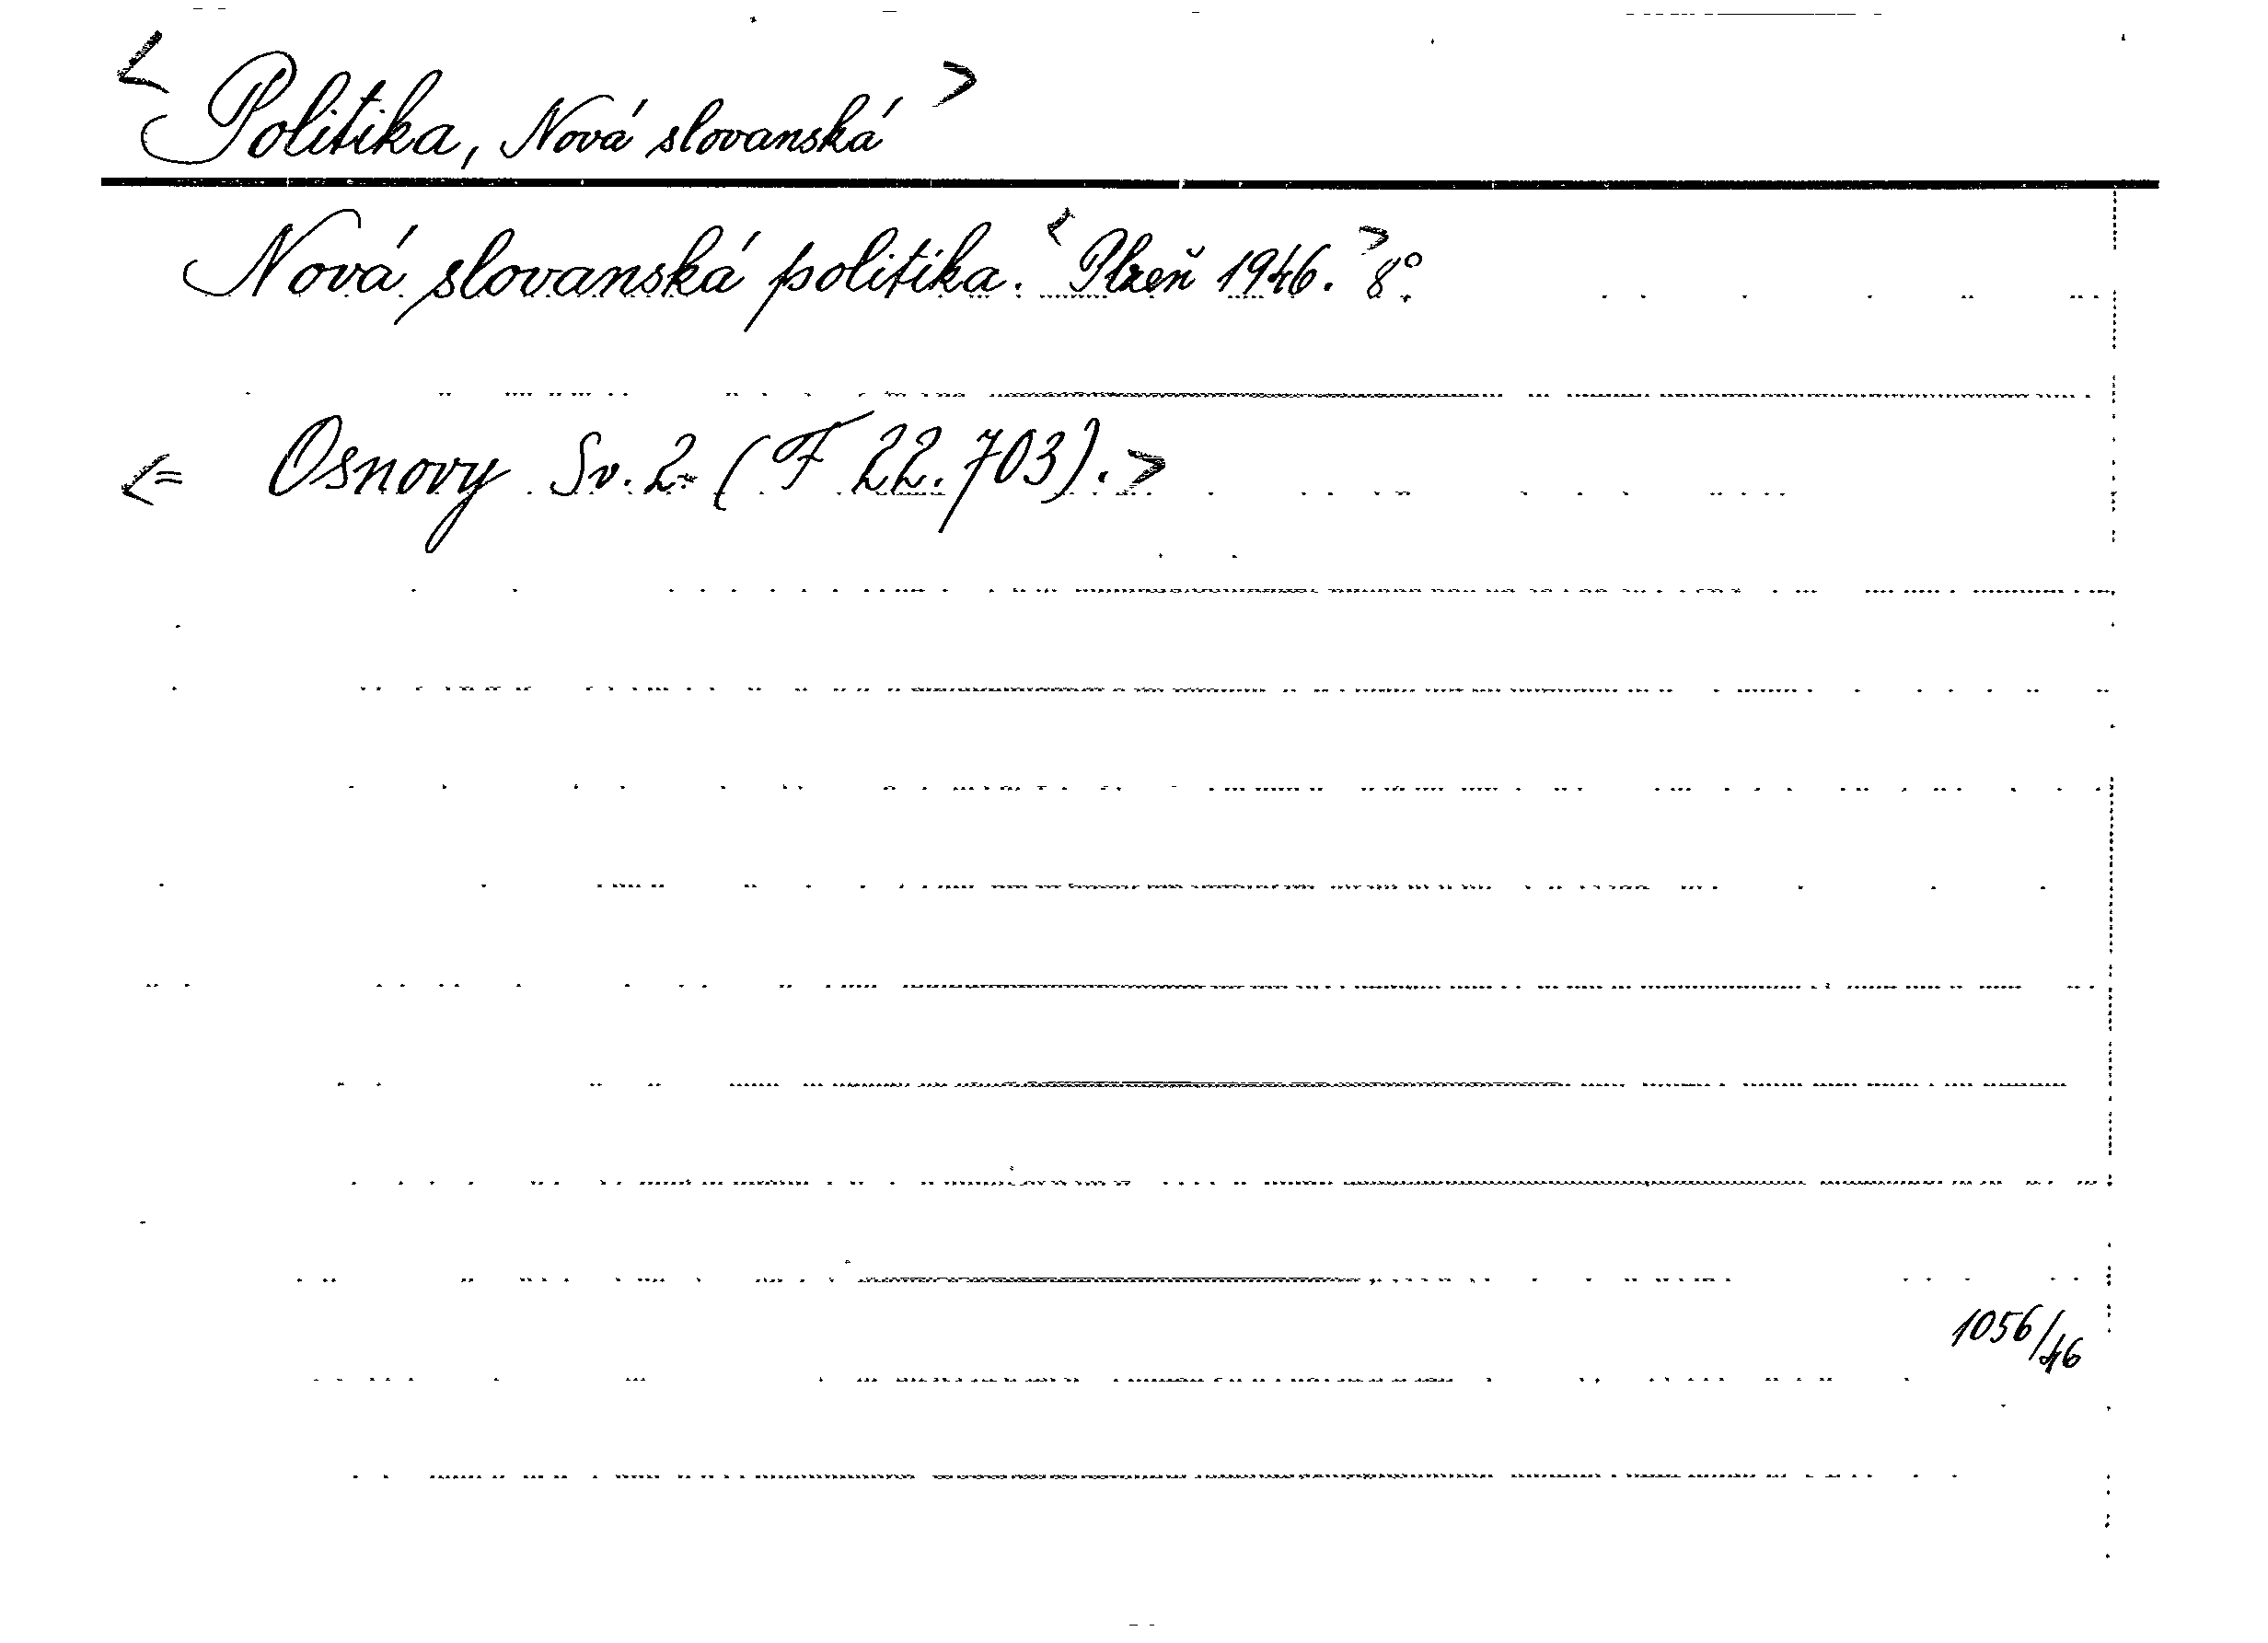 < Politika, Nová slovanská >
Nová slovanská politika. < Plzeň 1946. > 8°.
<= Osnovy Sv. 2. (F 22.703). >
1056/46